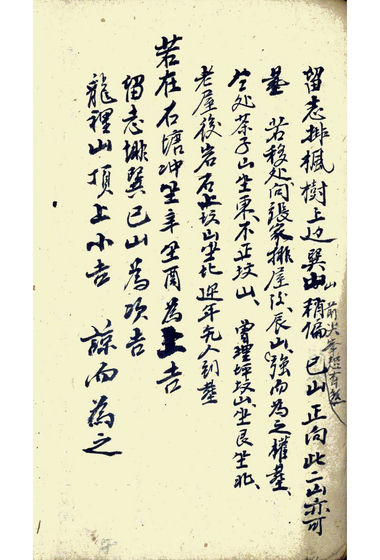 留志排楓樹上边巽山稍偏巳山正向此二山亦可
墓 若移处向張家排屋後辰山強而為之權墓、
仝处茶子山坐東不正坟山、曾埋坪坟山坐艮坐兆、
老屋後岩石上坟山坐北迎年先人到墓
若在石塘冲坐辛坐酉為上吉
留志排巽巳山為次吉
龍裡山頂上小吉 諒而為之
山前尖峯